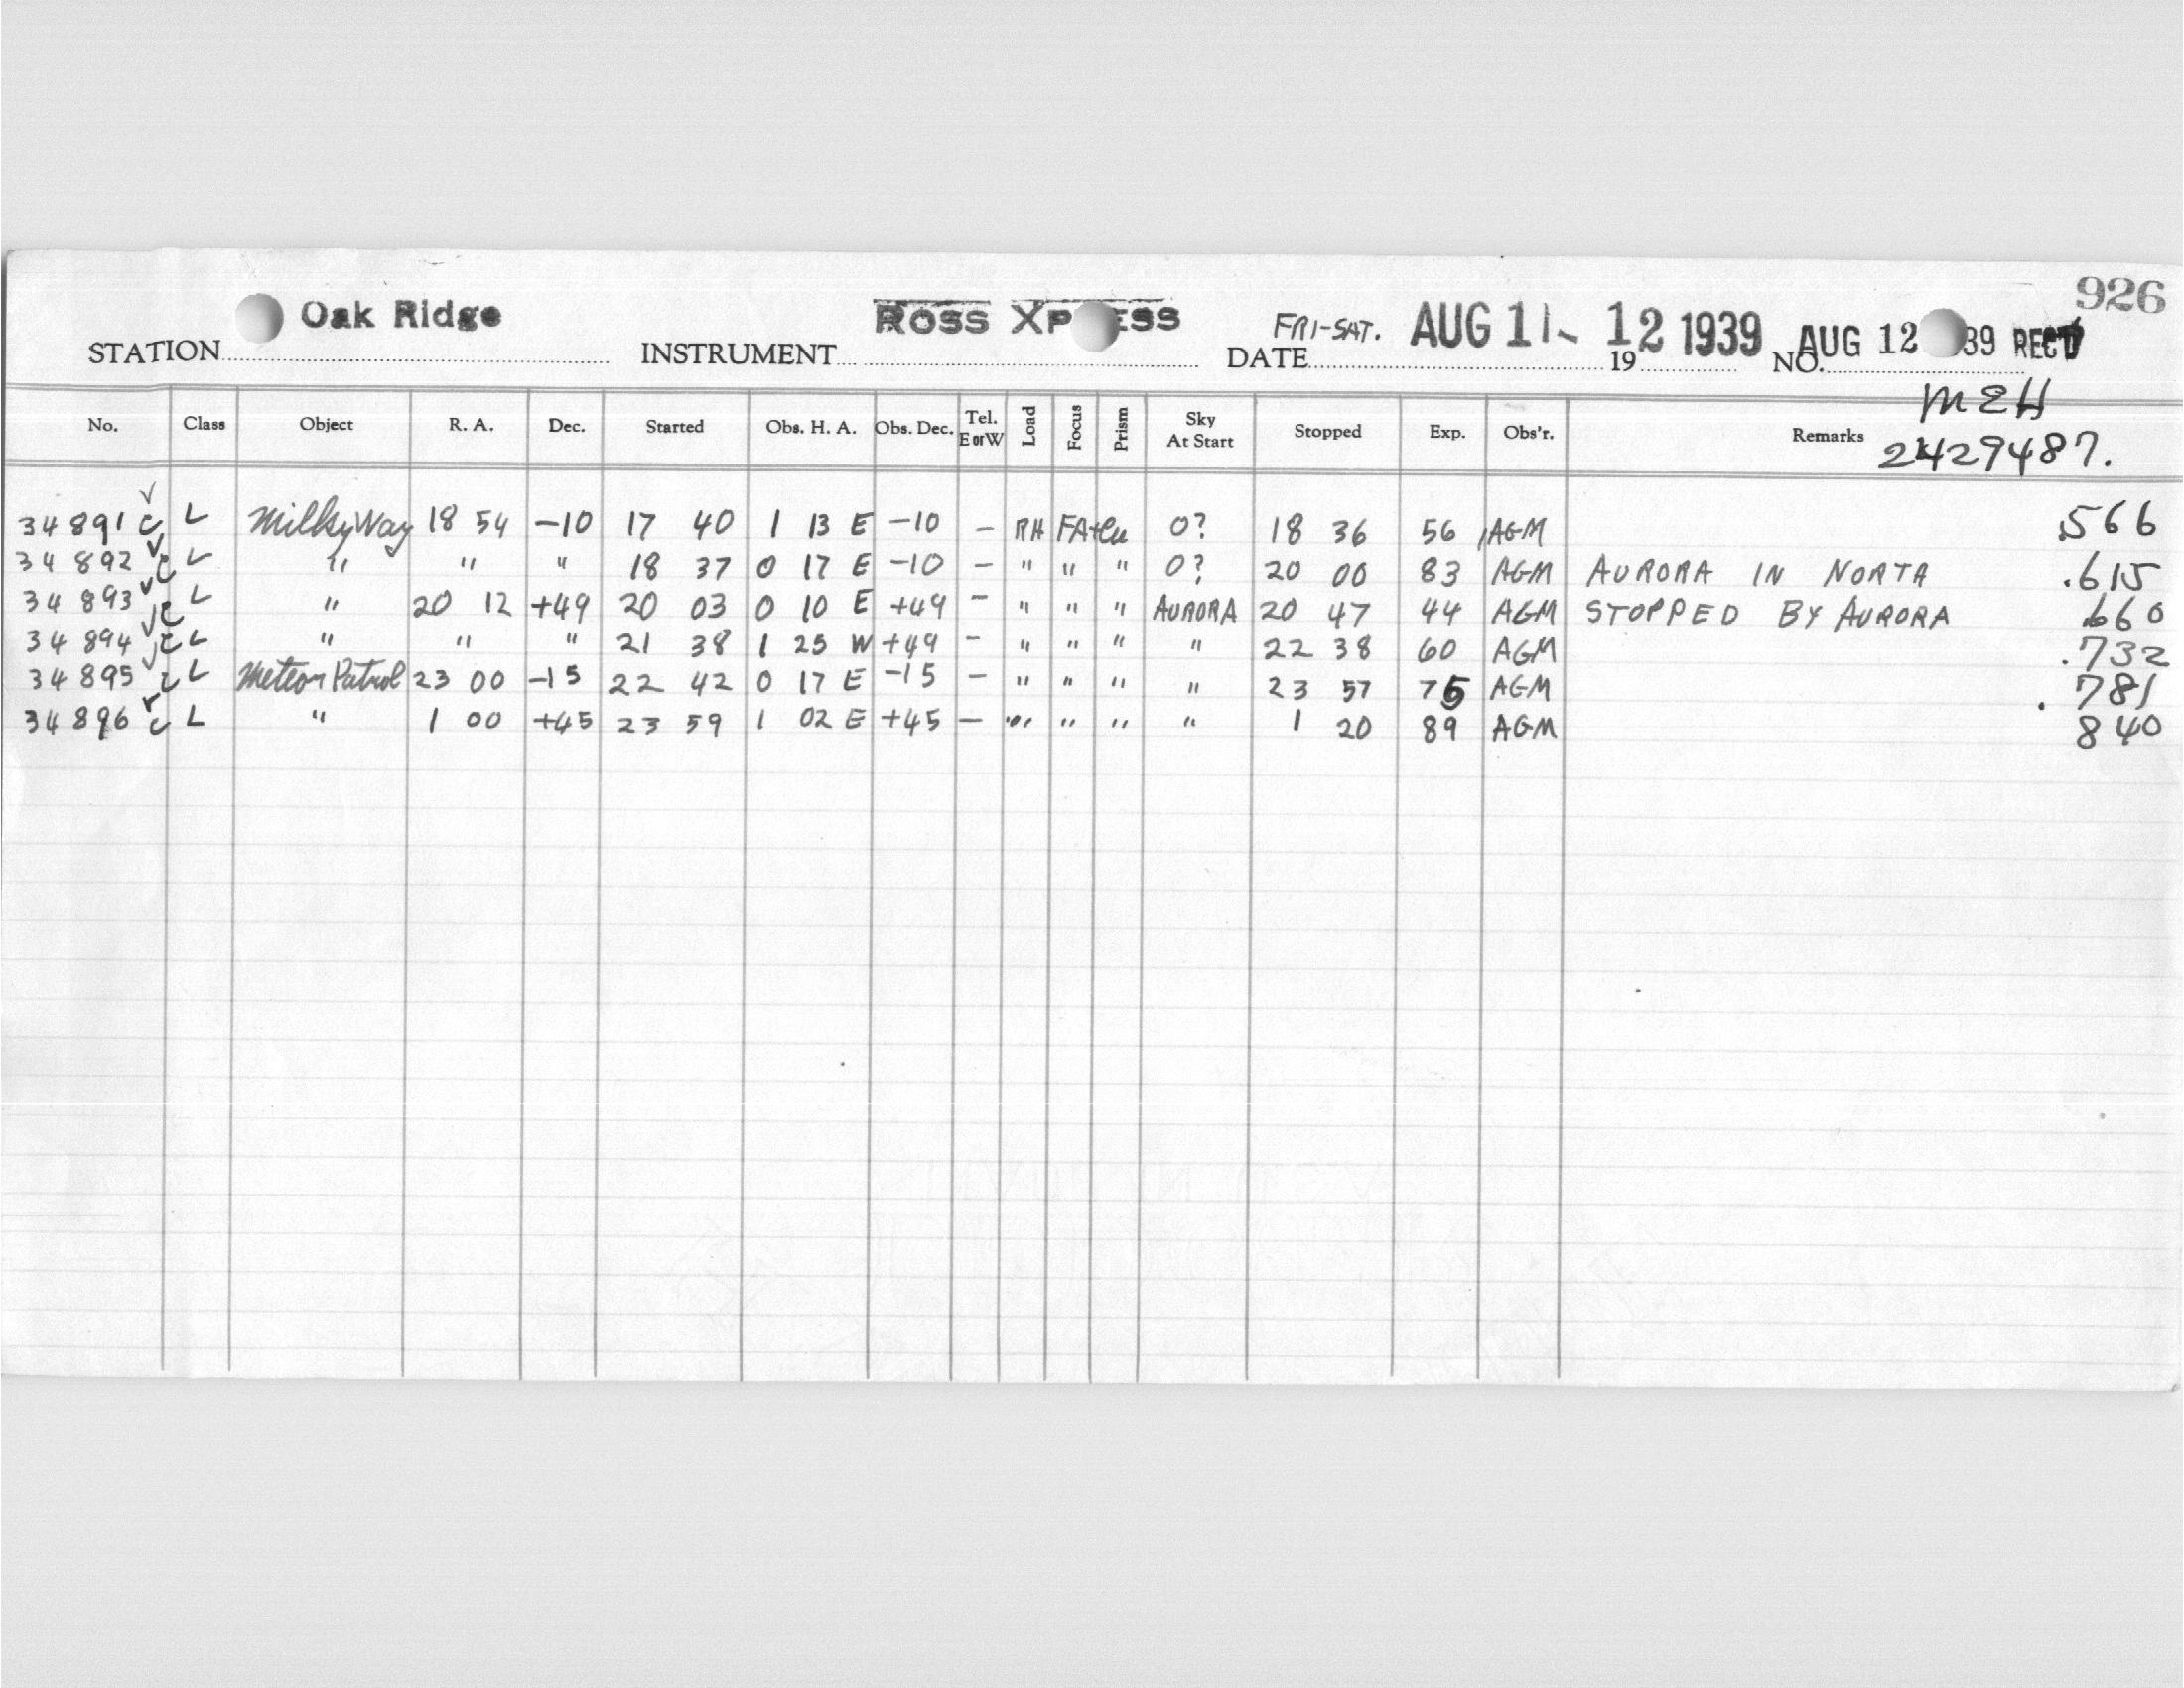 926
Oak Ridge ROSS XPRESS FRI-SAT. AUG 11-12 1939 AUG 12 39 REC'D
STATION INSTRUMENT DATE 19 NO.
MEH
No. Class Object R. A. Dec. Started Obs. H. A. Obs. Dec. Tel. E or W Load Focus Prism Sky At Start Stopped Exp. Obs'r. Remarks 2429487.
34891 C L Milky Way 18 54 -10 17 40 1 13 E -10 - RH FA+Cu 0? 18 36 56 AGM .566
34892 C L " " " 18 37 0 17 E -10 - " " " 0? 20 00 83 AGM AURORA IN NORTH .615
34893 C L " 20 12 +49 20 03 0 10 E +49 - " " " AURORA 20 47 44 AGM STOPPED BY AURORA .660
34894 C L " " " 21 38 1 25 W +49 - " " " " 22 38 60 AGM .732
34895 C L Meteor Patrol 23 00 -15 22 42 0 17 E -15 - " " " " 23 57 75 AGM .781
34896 C L " 1 00 +45 23 59 1 02 E +45 - " " " " 1 20 89 AGM .840